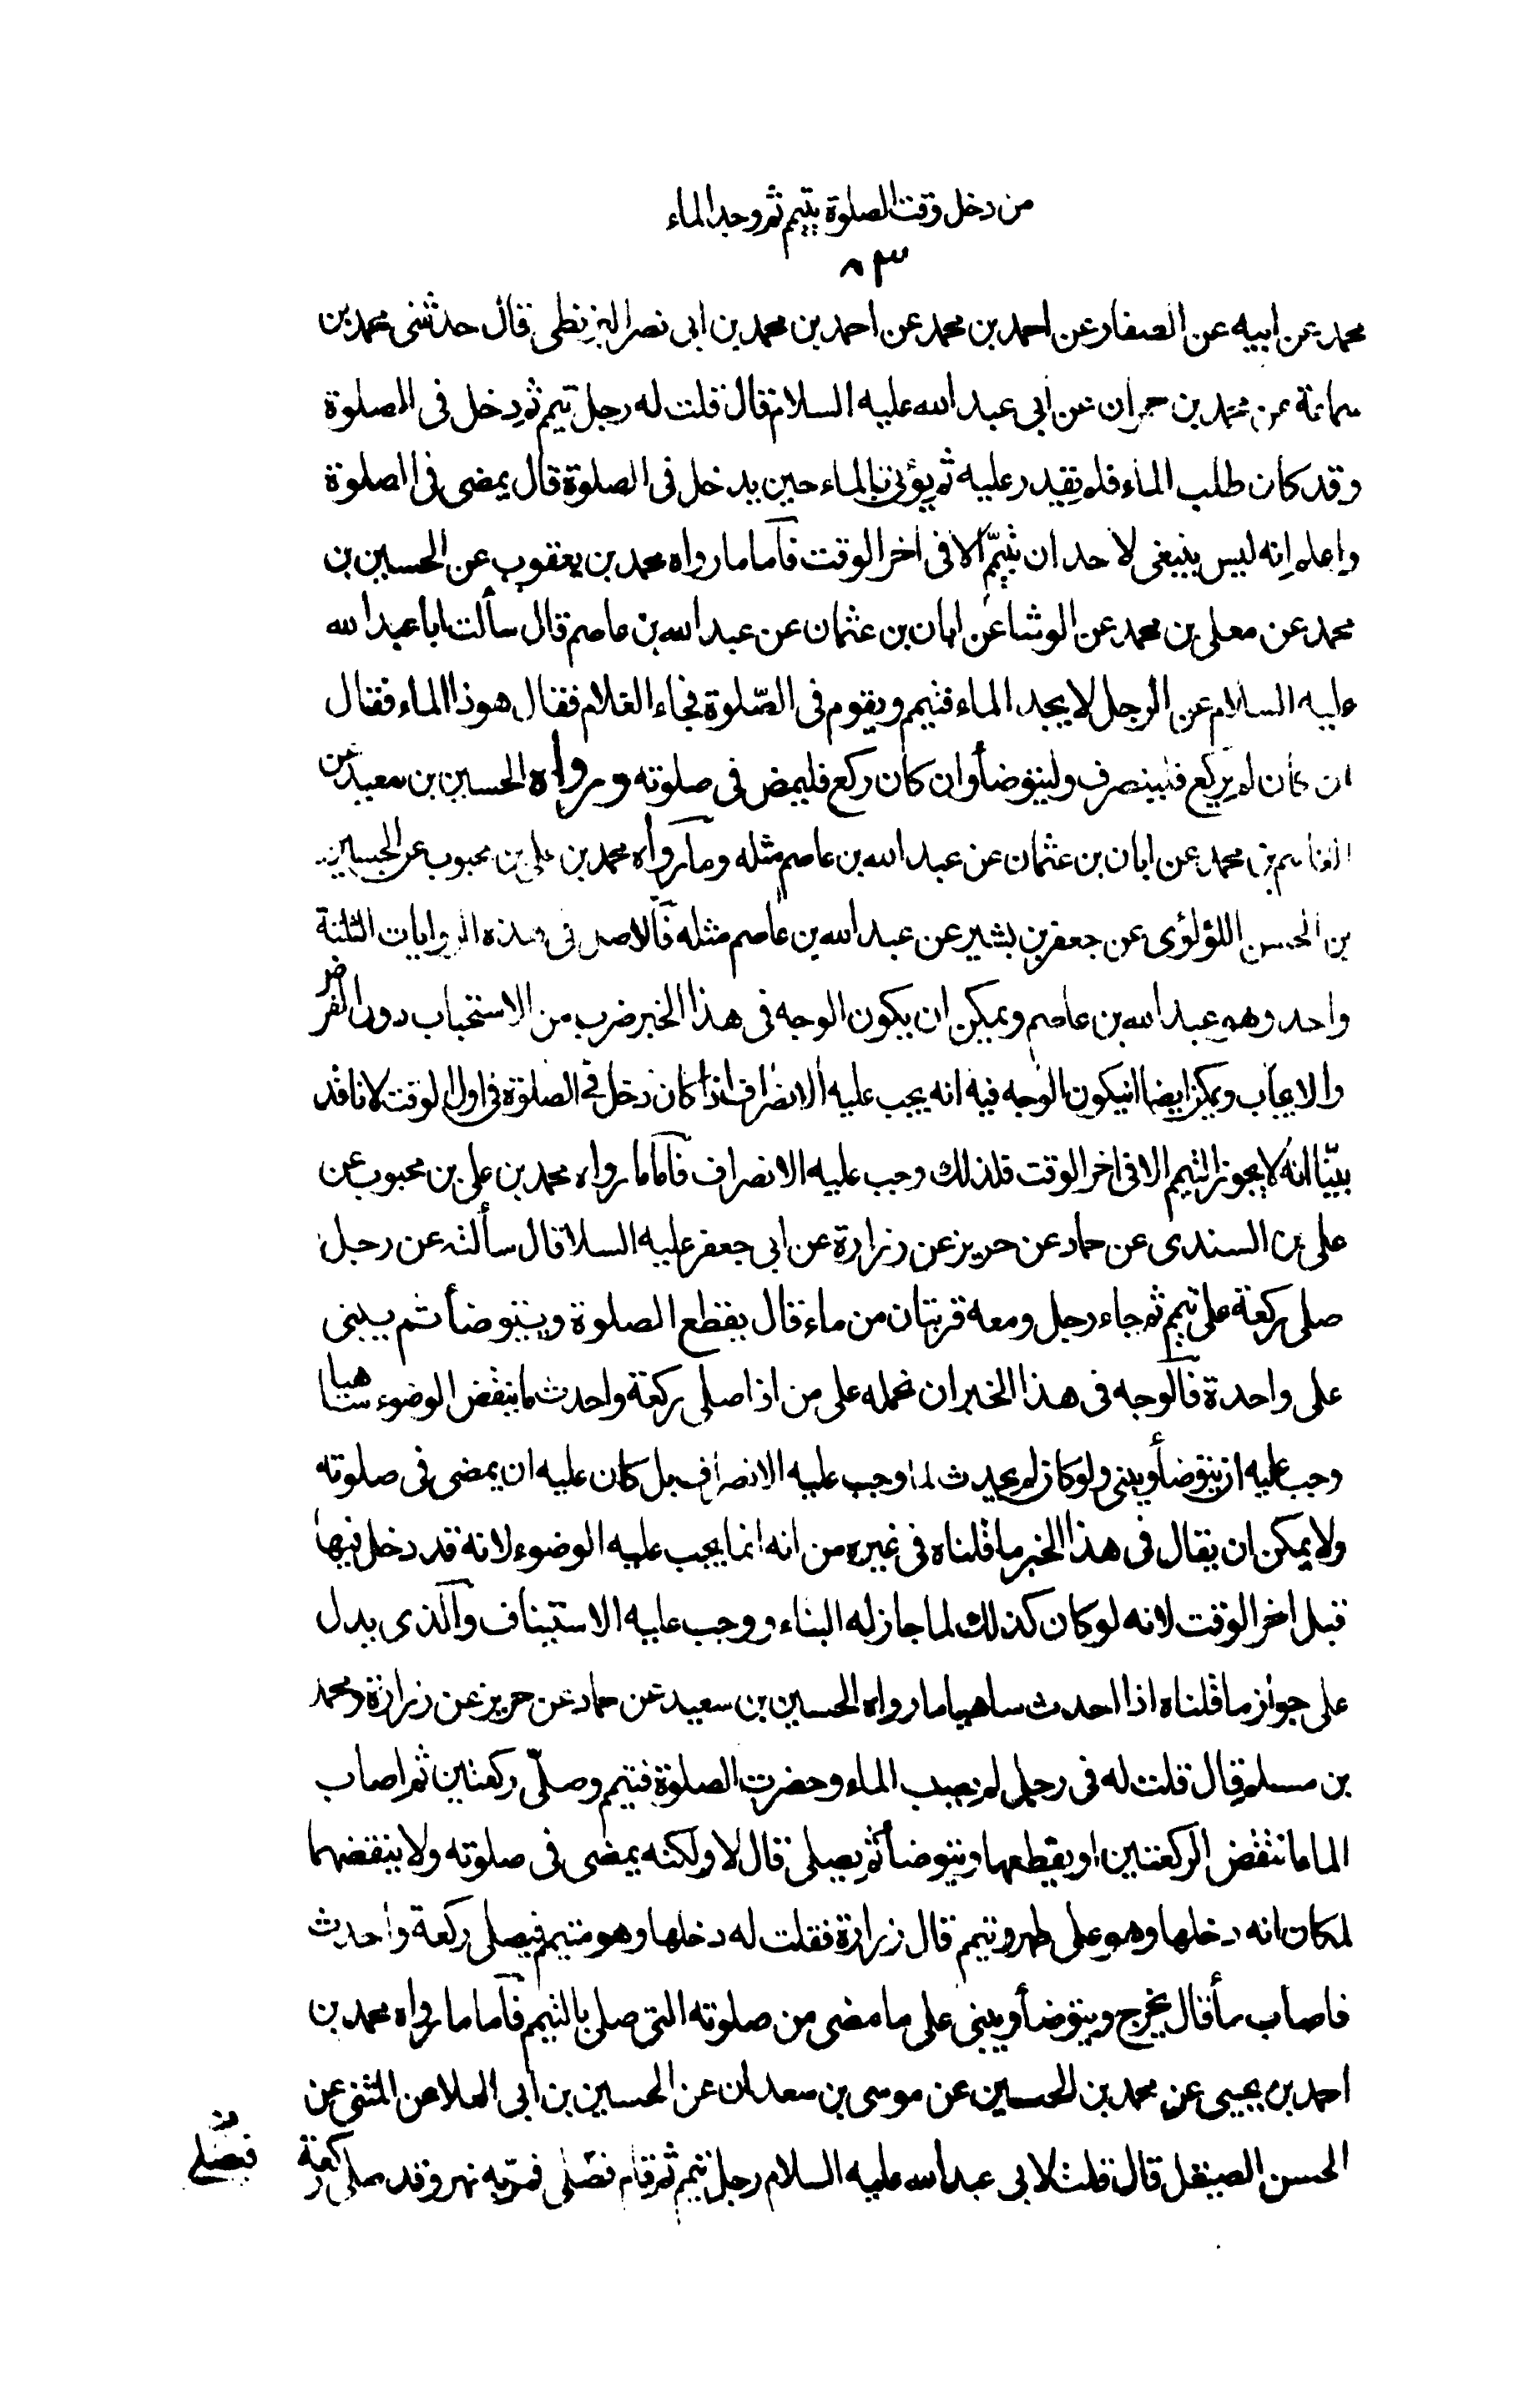 من دخل وقت الصلوة بتيمم ثم وجد الماء
٨٣
محمد عن ابيه عن الصفار عن احمد بن محمد عن احمد بن محمد بن ابى نصر البزنطى قال حدثنى محمد بن
سماعة عن محمد بن حمران عن ابى عبد الله عليه السلام قال قلت له رجل تيمم ثم دخل فى الصلوة
وقد كان طلب الماء فلم يقدر عليه ثم يؤتى بالماء حين يدخل فى الصلوة قال يمضى فى الصلوة
واعلم انه ليس ينبغى لاحد ان يتيمّم الا فى اخر الوقت فآما ما رواه محمد بن يعقوب عن الحسين بن
محمد عن معلى بن محمد عن الوشا عن ابان بن عثمان عن عبد الله بن عاصم قال سألت ابا عبد الله
عليه السلام عن الرجل لا يجد الماء فتيمم ويقوم فى الصّلوة فجاء الغلام فقال هوذا الماء فقال
ان كان لم يركع فلينصرف وليتوضأ وان كان ركع فليمض فى صلوته ورواه الحسين بن سعيد عن
القاسم بن محمد عن ابان بن عثمان عن عبد الله بن عاصم مثله ومآ رواه محمد بن على بن محبوب عن الحسين
بن الحسن اللؤلؤى عن جعفر بن بشير عن عبد الله بن عاصم مثله فآلاصل فى هذه الروايات الثلثة
واحد وهو عبد الله بن عاصم ويمكن ان يكون الوجه فى هذا الخبر ضرب من الاستحباب دون الفرض
والايجاب ويمكن ايضا ان يكون الوجه فيه انه يجب عليه الانصراف اذا كان دخل فى الصلوة فى اول الوقت لانا قد
بيّنا انه لا يجوز التيمم الا فى اخر الوقت فلذلك وجب عليه الانصراف فآما ما رواه محمد بن على بن محبوب عن
على بن السندى عن حماد عن حريز عن زرارة عن ابى جعفر عليه السلا قال سألته عن رجل
صلى ركعة على تيمم ثم جاء رجل ومعه قربتان من ماء قال يقطع الصلوة ويتوضأ ثم يبنى
على واحدة فآلوجه فى هذا الخبر ان نحمله على من اذا صلى ركعة واحدث ما ينقض الوضوء ساهيا
وجب عليه ان يتوضأ ويبنى ولو كان لم يحدث لما وجب عليه الانصراف بل كان عليه ان يمضى فى صلوته
ولا يمكن ان يقال فى هذا الخبر ما قلناه فى غيره من انه انما يجب عليه الوضوء لانه قد دخل فيها
قبل اخر الوقت لانه لو كان كذلك لما جاز له البناء ووجب عليه الاستيناف وآلذى يدل
على جواز ما قلناه اذا احدث ساهيا ما رواه الحسين بن سعيد عن حماد عن حريز عن زرارة ومحمد
بن مسلم قال قلت له فى رجل لم يصب الماء وحضرت الصلوة فتيمم وصلّى ركعتين ثم اصاب
الما ما ننقض الركعتين او يقطعها ويتوضأ ثم يصلى قال لا ولكنه يمضى فى صلوته ولا ينقضهما
لمكان انه دخلها وهو على طهر وتيمم قال زرارة فقلت له دخلها وهو متيمم فيصلى ركعة واحدث
فاصاب مأ قال يخرج ويتوضأ ويبنى على ما مضى من صلوته التى صلى بالتيمم فآما ما رواه محمد بن
احمد بن يحيى عن محمد بن الحسين عن موسى بن سعدان عن الحسين بن ابى العلا عن المثنى عن
الحسن الصيقل قال قلت لابى عبد الله عليه السلام رجل تيمم ثم قام فصّلى فمرّ به نهر وقد صلى ركعة
فصّلى